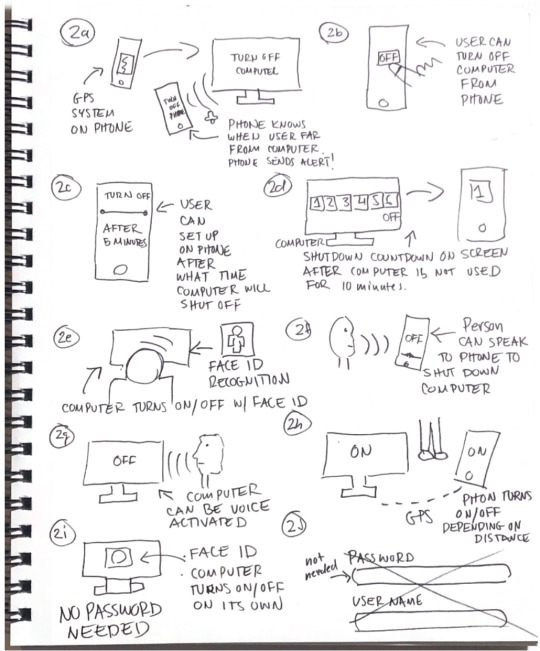 2a
GPS
SYSTEM
ON PHONE
TURN
OFF
PHONE
TURN OFF
COMPUTER
PHONE KNOWS
WHEN USER FAR
FROM COMPUTER.
PHONE SENDS ALERT!
2b
OFF
USER CAN
TURN OFF
COMPUTER
FROM
PHONE
2c
TURN OFF
AFTER
5 MINUTES
USER
CAN
SET UP
ON PHONE
AFTER
WHAT TIME
COMPUTER WILL
SHUT OFF
2d
1 2 3 4 5 6
OFF
1
COMPUTER
SHUTDOWN COUNTDOWN ON SCREEN
AFTER COMPUTER IS NOT USED
FOR 10 minutes.
2e
FACE ID
RECOGNITION
COMPUTER TURNS ON/OFF W/ FACE ID
2f
OFF
Person
CAN SPEAK
TO PHONE TO
SHUT DOWN
COMPUTER
2g
OFF
COMPUTER
CAN BE VOICE
ACTIVATED
2h
ON
ON
GPS
PHTON TURNS
ON/OFF
DEPENDING ON
DISTANCE
2i
· FACE ID
· COMPUTER
TURNS ON/OFF
ON ITS OWN
NO PASSWORD
NEEDED
2J
not
needed
PASSWORD
USER NAME